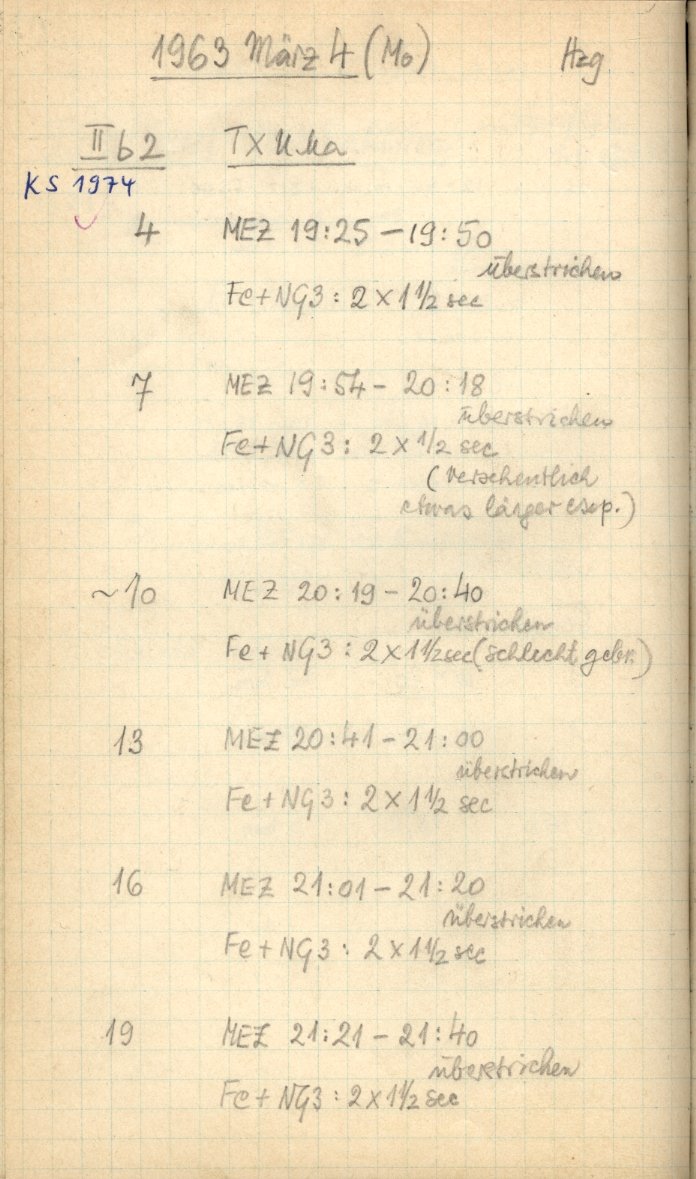 1963 März 4 (Mo) Hzg
II b 2 TX UMa
KS 1974
4 MEZ 19:25 – 19:50
überstrichen
Fe + NG3 : 2 × 1 1/2 sec
7 MEZ 19:54 – 20:18
überstrichen
Fe + NG3 : 2 × 1/2 sec
(versehentlich
etwas länger exp.)
~10 MEZ 20:19 – 20:40
überstrichen
Fe + NG3 : 2 × 1 1/2 sec (schlecht gebr.)
13 MEZ 20:41 – 21:00
überstrichen
Fe + NG3 : 2 × 1 1/2 sec
16 MEZ 21:01 – 21:20
überstrichen
Fe + NG3 : 2 × 1 1/2 sec
19 MEZ 21:21 – 21:40
überstrichen
Fe + NG3 : 2 × 1 1/2 sec